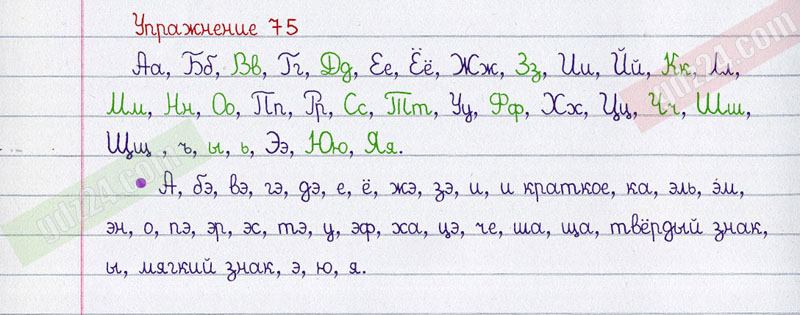 Упражнение 75
Аа, Бб, Вв, Гг, Дд, Ее, Ёё, Жж, Зз, Ии, Йй, Кк, Лл,
Мм, Нн, Оо, Пп, Рр, Сс, Тт, Уу, Фф, Хх, Цц, Чч, Шш,
Щщ , ъ, ы, ь, Ээ, Юю, Яя.
• А, бэ, вэ, гэ, дэ, е, ё, жэ, зэ, и, и краткое, ка, эль, эм,
эн, о, пэ, эр, эс, тэ, у, эф, ха, цэ, че, ша, ща, твёрдый знак,
ы, мягкий знак, э, ю, я.
gdz24.com
gdz24.com